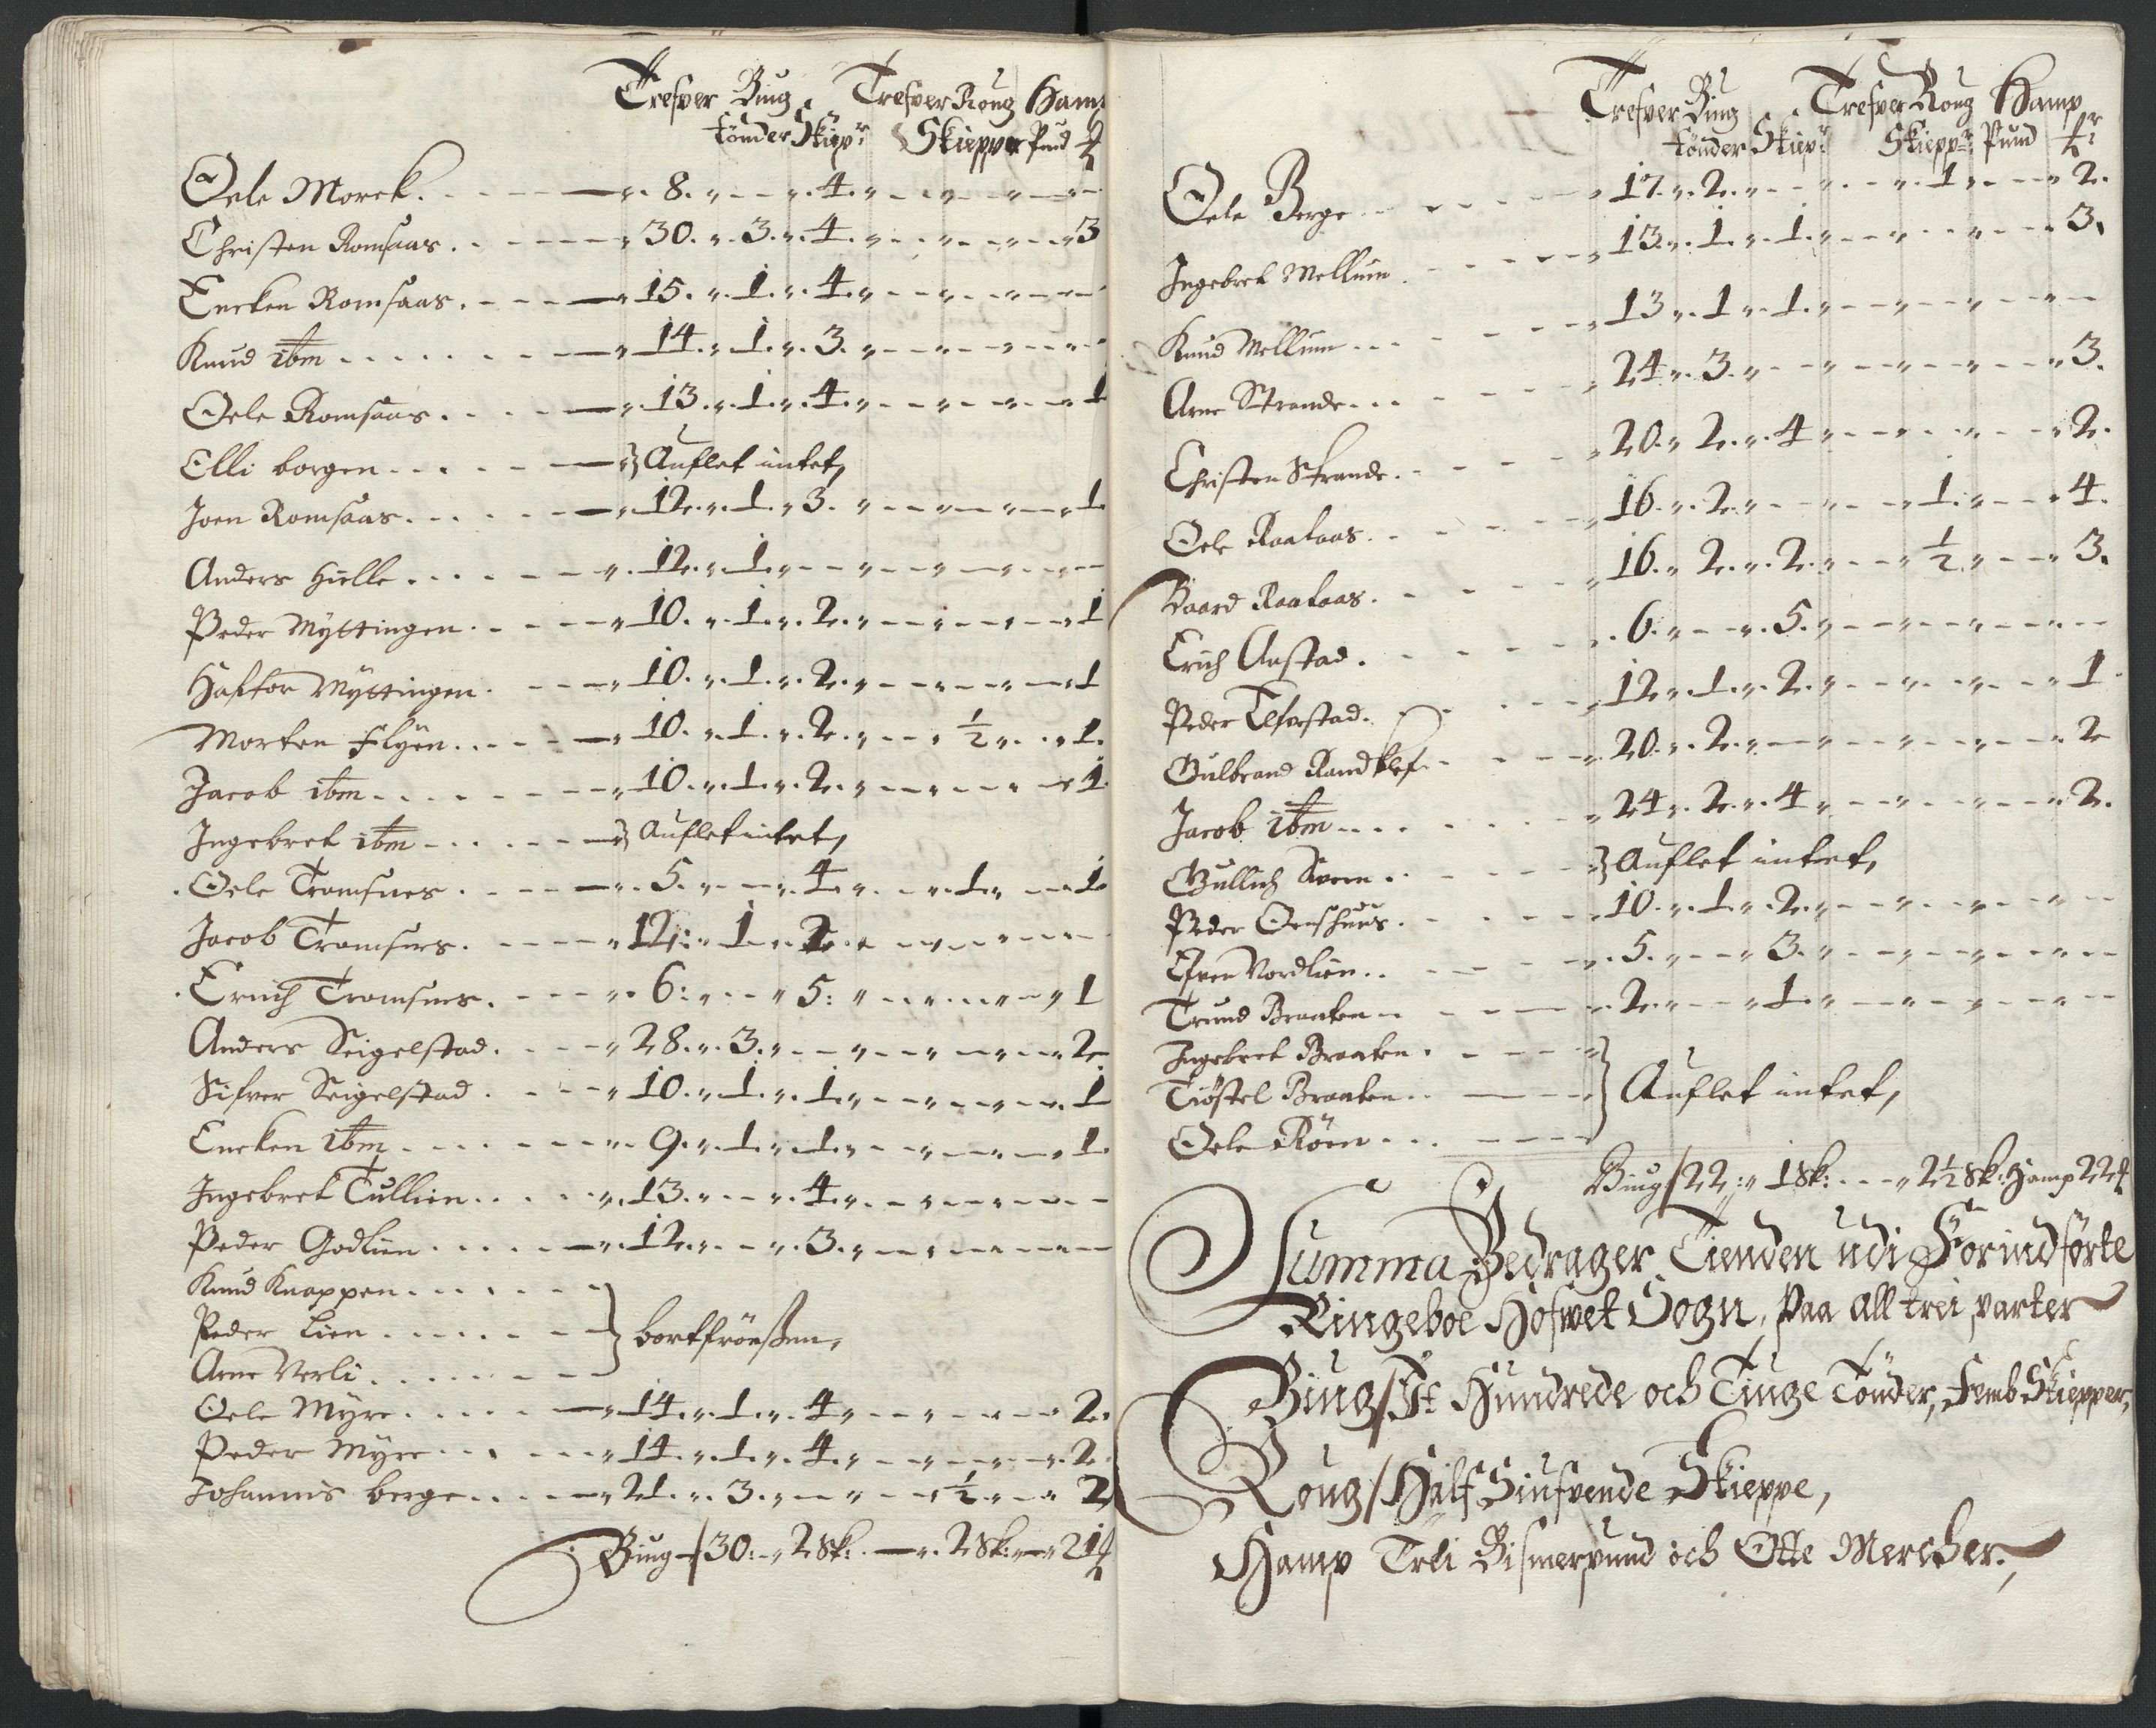 Trefver Biug, Trefver Roug Hamp
tönder Skiepr Skiepper Pund
Oele Morck. 8. 4.
Christen Romsaas. 30. 3. 4. 3
Encken Romsaas. 15. 1. 4.
Knud ibm 14. 1. 3.
Oele Romsaas. 13. 1. 4. 1
Elli borgen Auflet intet,
Joen Romsaas. 12. 1. 3. 1
Anders Hielle 12. 1.
Peder Myttingen. 10. 1. 2. 1
Haftor Myttingen. 10. 1. 2. 1
Morten Flyen. 10. 1. 2. ½ 1.
Jacob ibm 10. 1. 2. 1
Ingebret ibm Auflet intet,
Oele Tromsnes. 5. 4. 1. 1
Jacob Tromsnes. 12: 1. 2.
Erich Tromsnes. 6: 5: 1
Anders Seigelstad. 28. 3. 2
Sifver Seigelstad. 10. 1. 1. 1
Encken ibm 9. 1. 1. 1.
Ingebret Tullien. 13. 4.
Peder Godlien. 12. 3.
Knud Knappen.
Peder Lien. bortfröeßen,
Arne Verli.
Oele Myre. 14. 1. 4. 2.
Peder Myre 14. 1. 4. 2.
Johannis berge. 21. 3. ½ 2
Biug 30: 2 Sk: 2 Sk: 21
Trefver Biug, Trefver Roug Hamp
tönder Skiepr Skieppr: Pund
Oele Berge 17. 2. 1. 2.
Ingebret Mellum. 13. 1. 1. 3.
Knud Mellum 13. 1. 1.
Arne Strande. 24. 3. 3.
Christen Strande. 20. 2. 4 2.
Oele Raaaas. 16. 2. 1. 4.
Baard Raaaas. 16. 2. 2. ½ 3.
Erich Aastad. 6. 5.
Peder Elfvestad. 12. 1. 2. 1
Gulbrand Randklef 20. 2. 2
Jacob ibm 24. 2. 4 2.
Gullich Aaen. Auflet intet,
Peder Oenshuus. 10. 1. 2.
Efven Nordlien. 5. 3.
Trund Braaten 2. 1.
Ingebret Braaten.
Tiöstel Braaten Auflet intet,
Oele Röen
Biug 22: 1 Sk: 2½ Sk: Hamp 22
Summa Bedrager Tienden udi Forindförte
Ringeboe Hofwet Sogn, Paa all trei parter
Biug/ It Hundrede och Tiuge Tönder, Femb Skiepper,
Roug/ Half Siufvende Skieppe,
Hamp Trei Bismerpund och Otte Mercher.